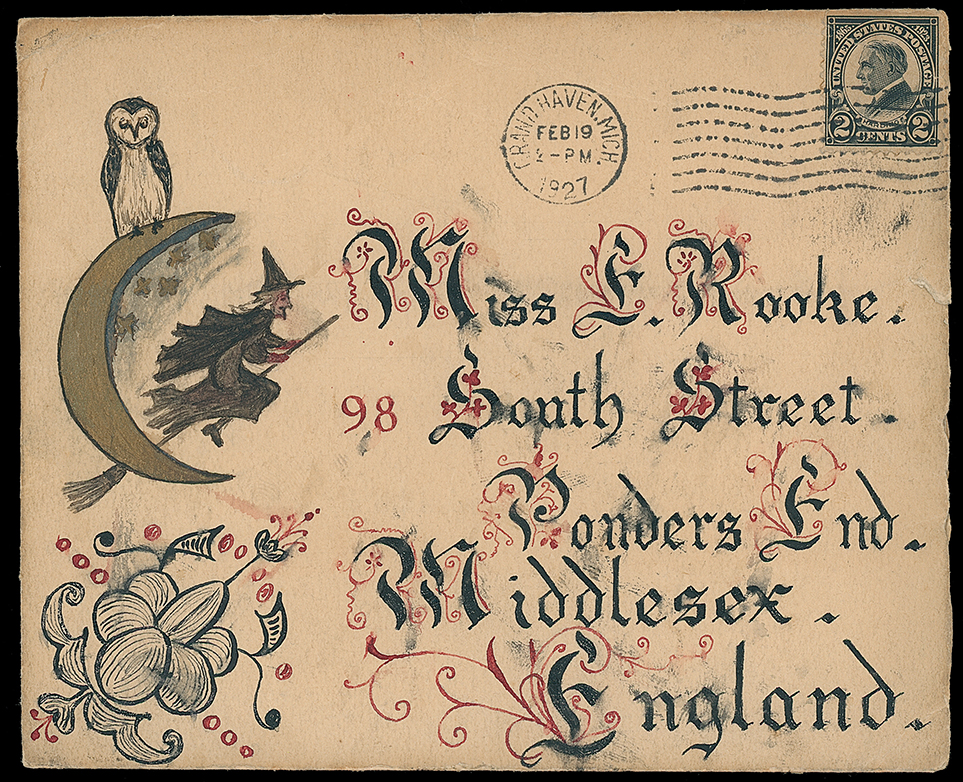 GRAND HAVEN, MICH.
FEB 19
-PM
1927
1865 UNITED STATES POSTAGE 1923
HARDING
2 CENTS 2
Miss E. Rooke.
98 South Street.
Ponders End.
Middlesex.
England.